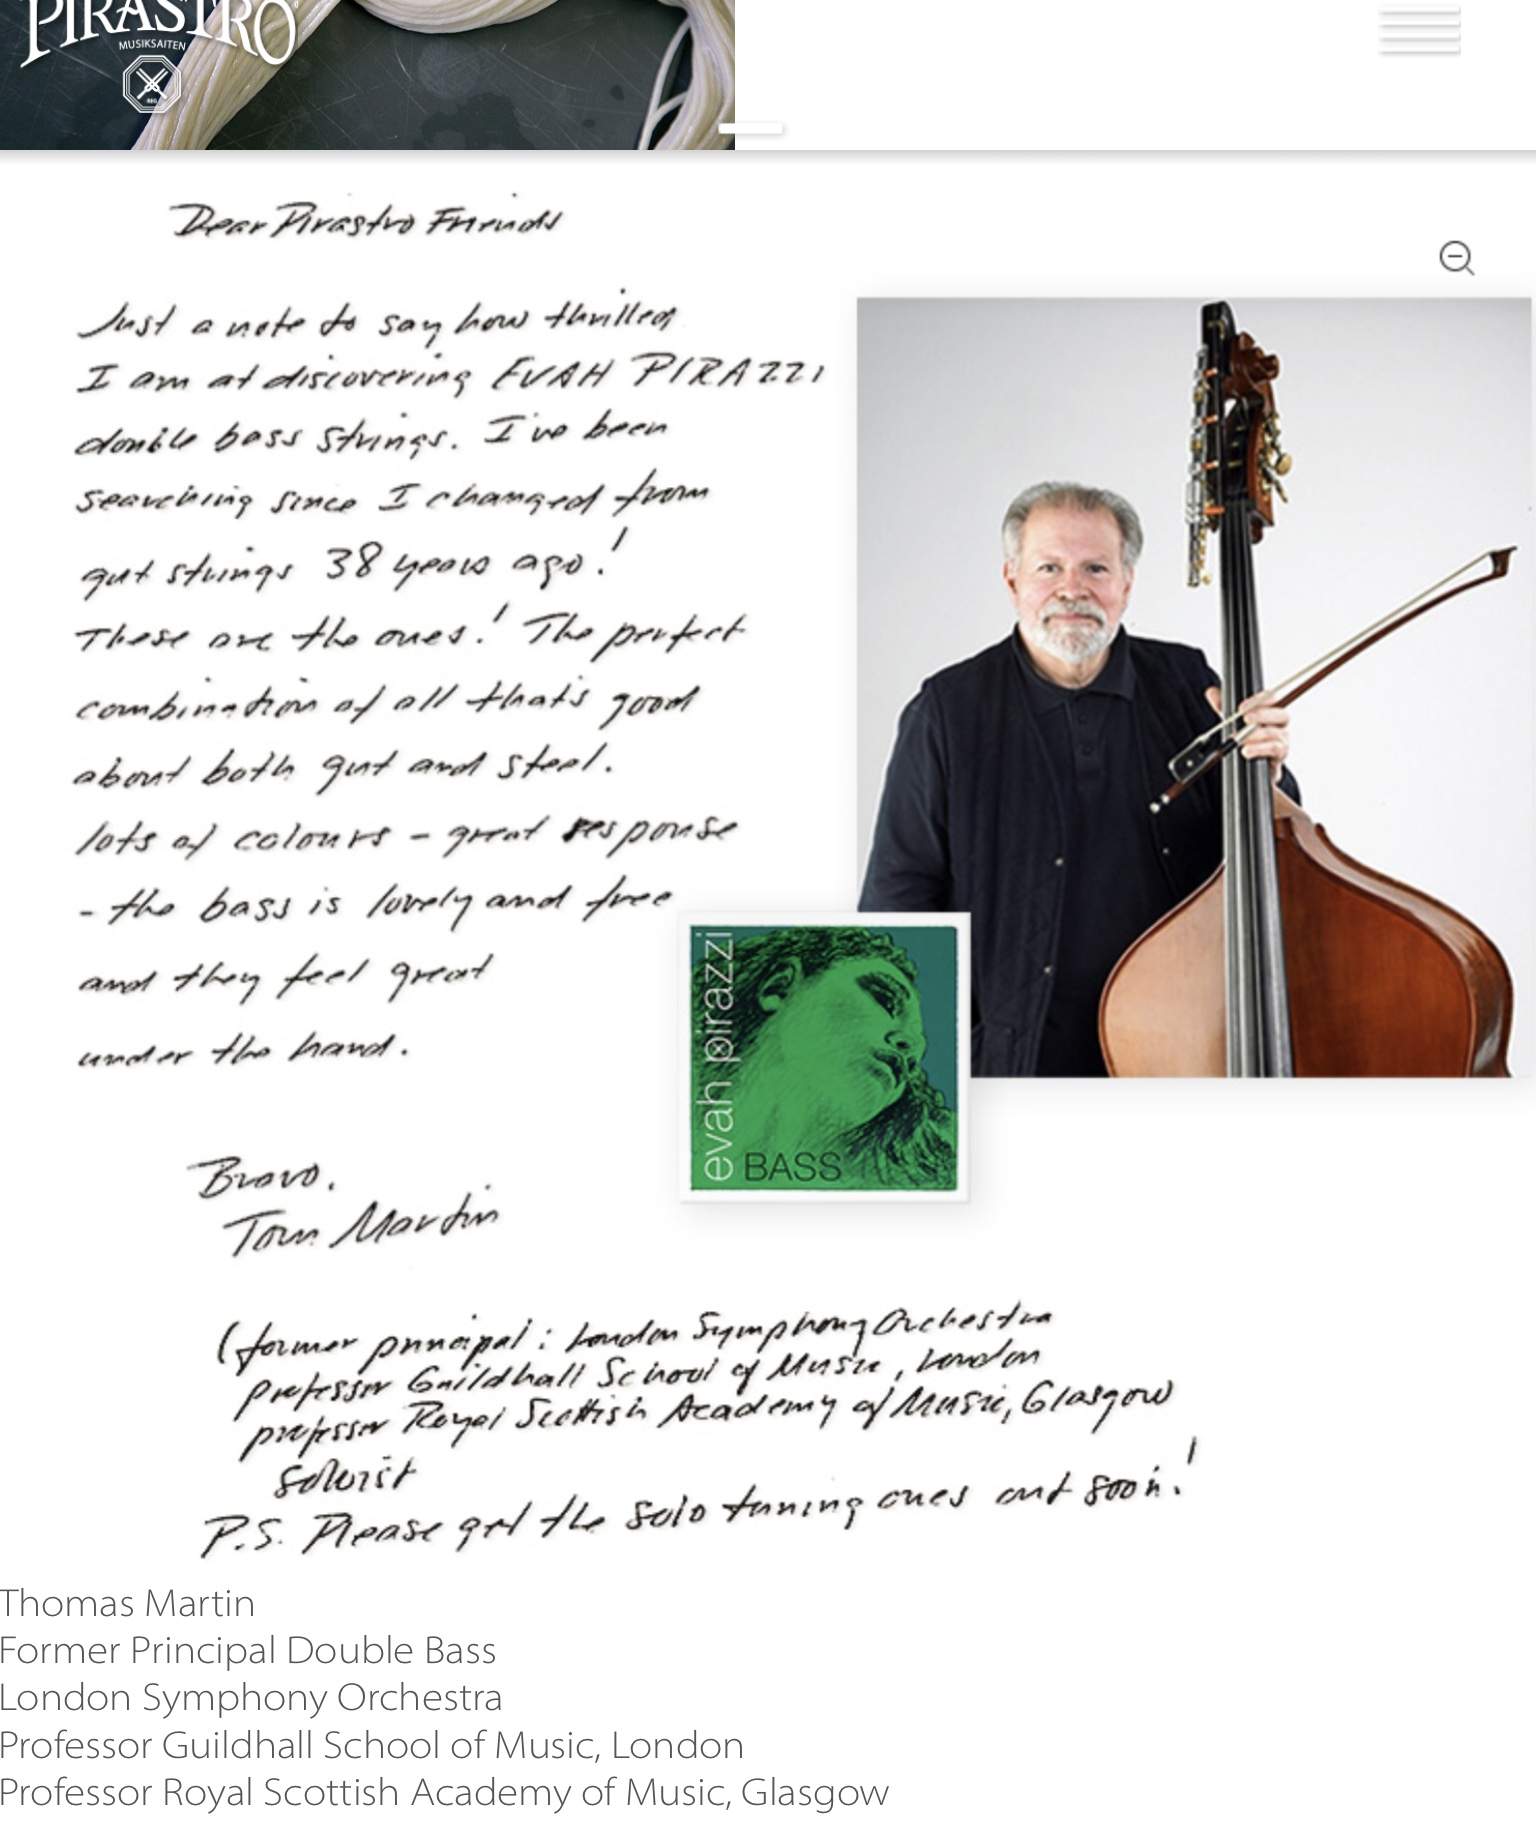 PIRASTRO
MUSIKSAITEN
REG.
Dear Pirastro Friends
Just a note to say how thrilled
I am at discovering EVAH PIRAZZI
double bass strings. I've been
searching since I changed from
gut strings 38 years ago!
These are the ones! The perfect
combination of all that's good
about both gut and steel.
lots of colours - great response
- the bass is lovely and free
and they feel great
under the hand.
evah pirazzi
BASS
Bravo.
Tom Martin
(former principal: London Symphony Orchestra
professor Guildhall School of Music, London
professor Royal Scottish Academy of Music, Glasgow
soloist
P.S. Please get the solo tuning ones out soon!
Thomas Martin
Former Principal Double Bass
London Symphony Orchestra
Professor Guildhall School of Music, London
Professor Royal Scottish Academy of Music, Glasgow